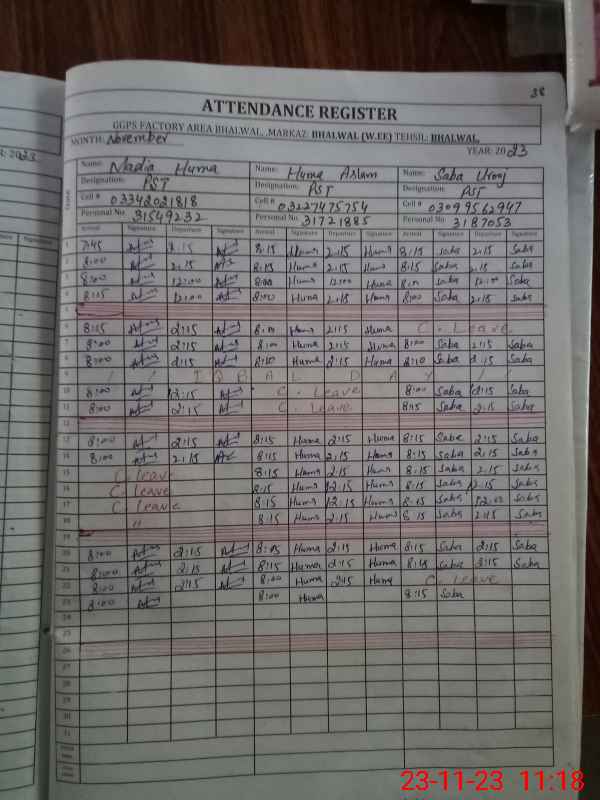 38
ATTENDANCE REGISTER
GGPS FACTORY AREA BHALWAL, ,MARKAZ: BHALWAL (W.EE) TEHSIL: BHALWAL,
MONTH: November YEAR: 2023
Name: Nadia Huma Name: Huma Aslam Name: Saba Uroj
Designation: PST Designation: PST Designation: PST
Cell # 03342021818 Cell # 03227475754 Cell # 03099562947
Personal No. 31549232 Personal No. 31721885 Personal No. 3187053
Arrival Signature Departure Signature Arrival Signature Departure Signature Arrival Signature Departure Signature
1 7:45 2:15 8:15 Huma 2:15 Huma 8:15 Saba 2:15 Saba
2 8:00 2:15 8:15 Huma 2:15 Huma 8:15 Saba 2:15 Saba
3 8:00 12:00 8:00 Huma 12:00 Huma 8:00 Saba 12:00 Saba
4 8:15 12:00 8:00 Huma 2:15 Huma 8:00 Saba 2:15 Saba
5
6 8:15 2:15 8:00 Huma 2:15 Huma C. Leave
7 8:00 2:15 8:00 Huma 2:15 Huma 8:00 Saba 2:15 Saba
8 8:00 2:15 8:10 Huma 2:15 Huma 8:10 Saba 2:15 Saba
9 IQBAL DAY
10 8:00 2:15 C. Leave 8:00 Saba 2:15 Saba
11 8:00 2:15 C. Leave 8:15 Saba 2:15 Saba
12
13 8:00 2:15 8:15 Huma 2:15 Huma 8:15 Saba 2:15 Saba
14 8:00 2:15 8:15 Huma 2:15 Huma 8:15 Saba 2:15 Saba
15 C. leave 8:15 Huma 2:15 Huma 8:15 Saba 2:15 Saba
16 C. leave 8:15 Huma 12:15 Huma 8:15 Saba 12:15 Saba
17 C. leave 8:15 Huma 12:15 Huma 8:15 Saba 12:00 Saba
18 " 8:15 Huma 2:15 Huma 8:15 Saba 2:15 Saba
19
20 8:00 2:15 8:15 Huma 2:15 Huma 8:15 Saba 2:15 Saba
21 8:00 2:15 8:15 Huma 2:15 Huma 8:15 Saba 2:15 Saba
22 8:00 2:15 8:00 Huma 2:15 Huma C. Leave
23 8:00 8:00 Huma 8:15 Saba
24
25
26
27
28
29
30
31
23-11-23 11:18